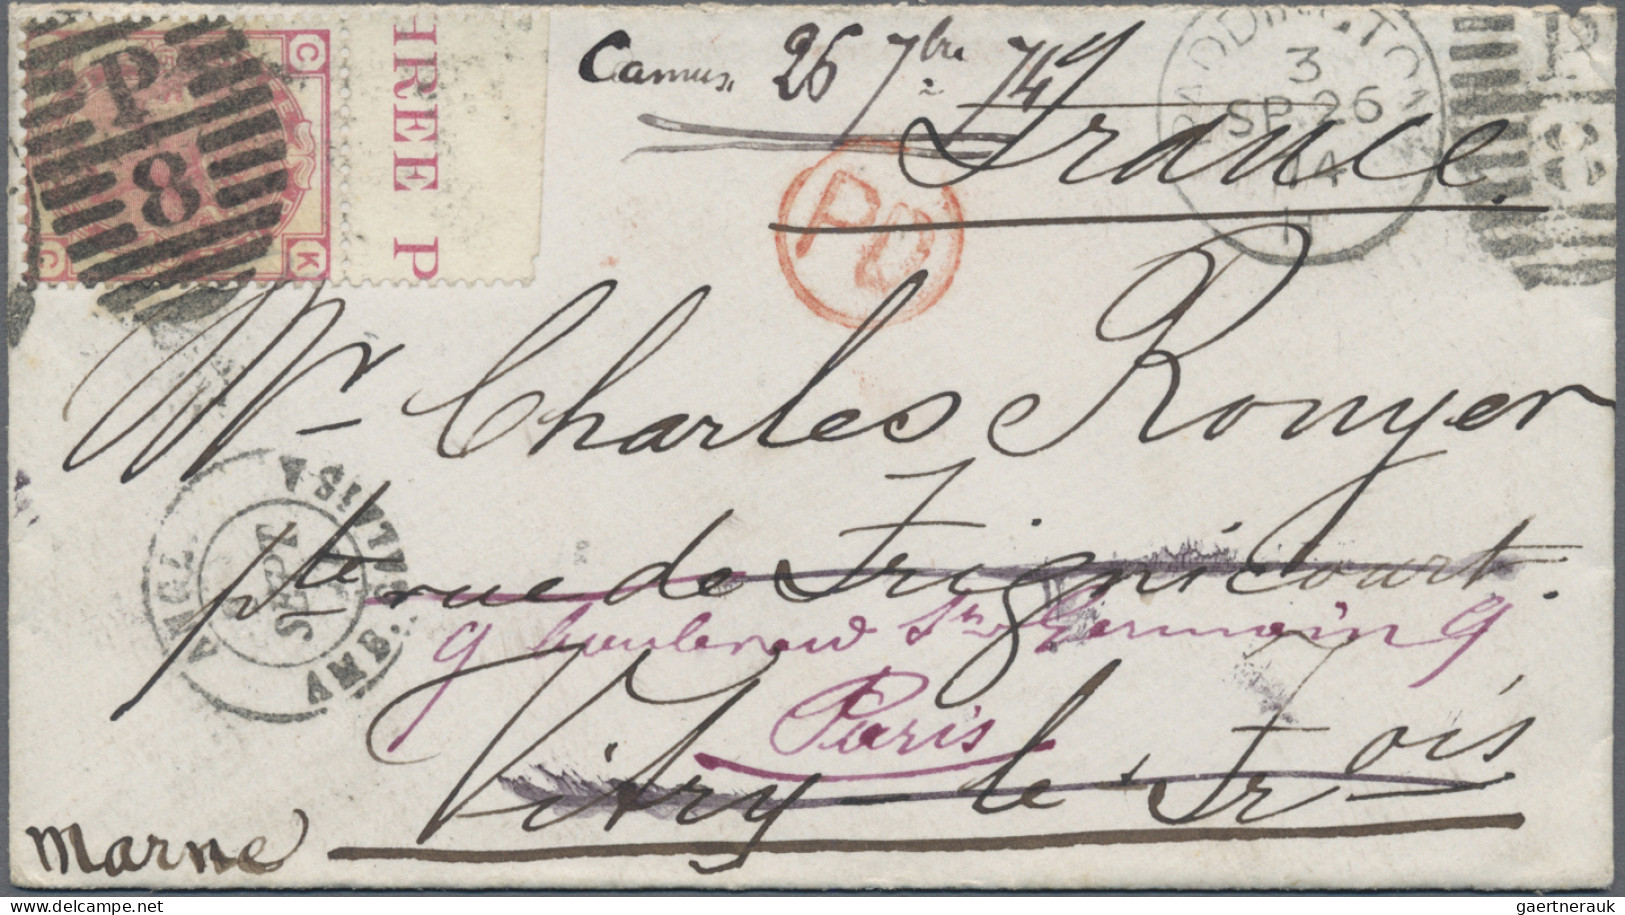 THREE P
C
K
C
P
8
Camus. 26 7bre 74
PADDINGTON W
3
SP 26
74
P
8
France
PD
Mr Charles Rouyer
pte rue de Frignicourt.
9 boulevard St Germain 9
Paris
Vitry-le-Frois
Marne
ANGL.
AMB. CALAIS A
27
SEPT
74
gaertnerauk @ delcampe.net